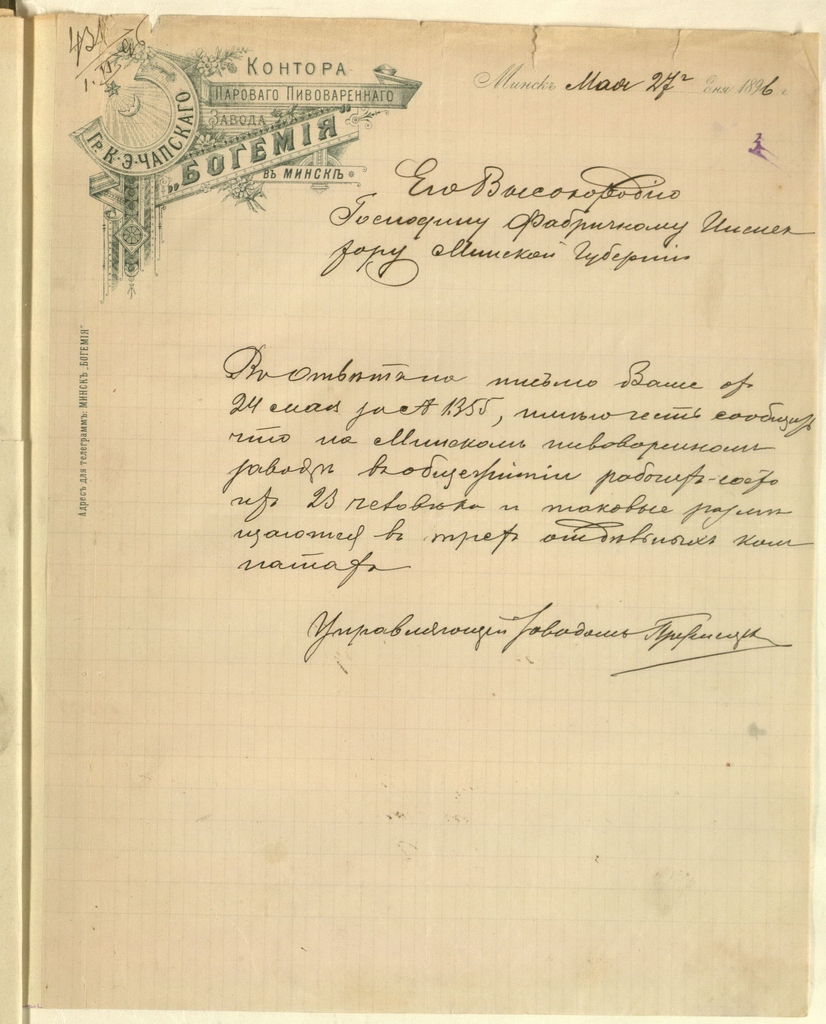 КОНТОРА
ПАРОВАГО ПИВОВАРЕННАГО
ЗАВОДА
ГР. К. Э. ЧАПСКАГО
„БОГЕМІЯ"
ВЪ МИНСКѢ
Минскъ Мая 27 г дня 1896 г.
3
Его Высокородію
Господину Фабричному Инспек
тору Минской Губерніи
Въ отвѣтъ на письмо Ваше от
24 мая за № 1355, имѣю честь сообщить
что на Минскомъ пивоваренномъ
заводѣ въ общежитіи рабочих
из 23 человѣка и таковые размѣ
щаются въ трех отдѣльныхъ ком
натахъ
Управляющій заводомъ
Адресъ для телеграммъ: МИНСКЪ „БОГЕМІЯ"